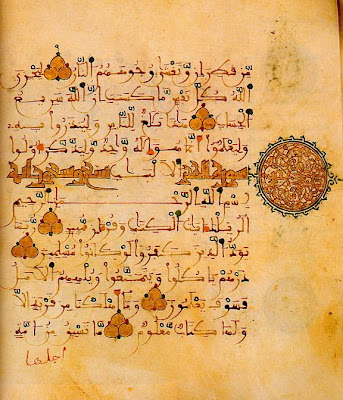 من قطران وتغشى وجوههم النار ليجزي
الله كل نفس ما كسبت ان الله سريع
الحساب هذا بلغ للناس ولينذروا به
وليعلموا انما هو اله وحد وليذكر اولوا
الالبب سورة الحجر تسعون وتسع اية
بسم الله الرحمن الرحيم
الر تلك ايت الكتب وقران مبين ربما
يود الذين كفروا لو كانوا مسلمين
ذرهم ياكلوا ويتمتعوا ويلههم الامل
فسوف يعلمون وما اهلكنا من قرية الا
ولها كتاب معلوم ما تسبق من امة
اجلها